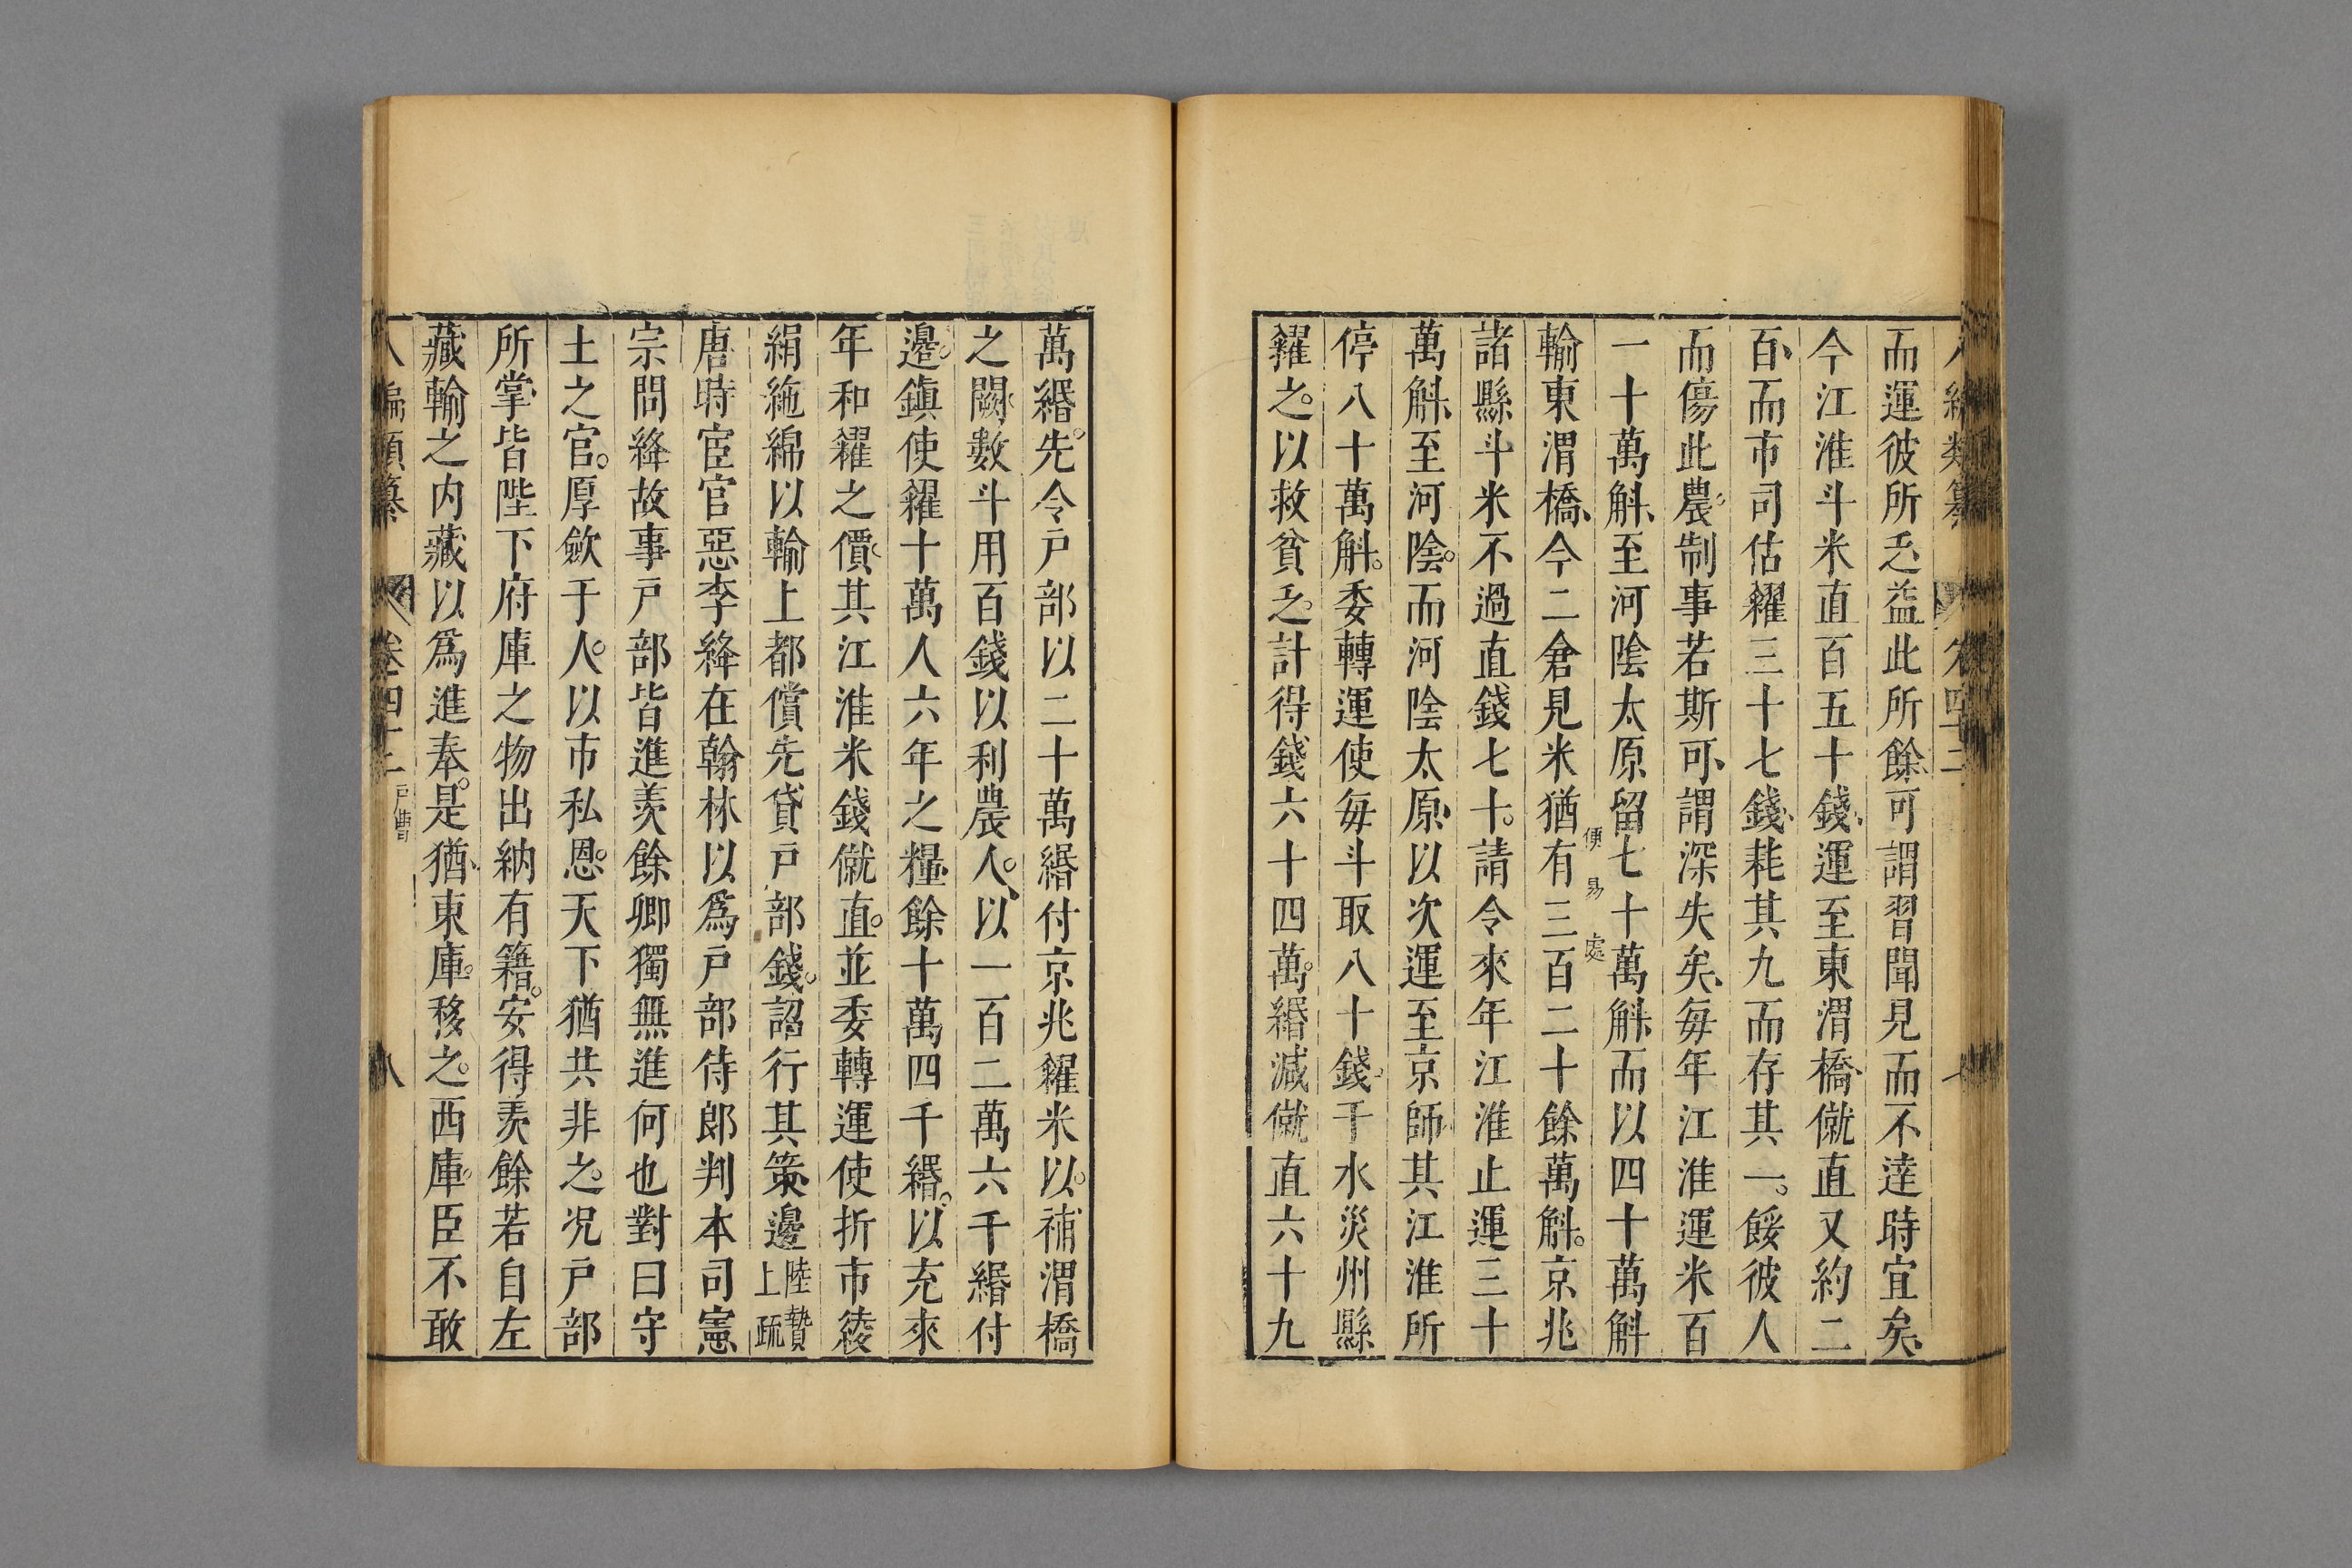 而運彼所乏益此所餘可謂習聞見而不達時宜矣
今江淮斗米直百五十錢運至東渭橋僦直又約二
百而市司估糴三十七錢耗其九而存其一餒彼人
而傷此農制事若斯可謂深失矣每年江淮運米百
一十萬斛至河陰太原留七十萬斛而以四十萬斛
便易處
輸東渭橋今二倉見米猶有三百二十餘萬斛京兆
諸縣斗米不過直錢七十請令來年江淮止運三十
萬斛至河陰而河陰太原以次運至京師其江淮所
停八十萬斛委轉運使每斗取八十錢于水災州縣
糴之以救貧乏計得錢六十四萬緡減僦直六十九
萬緡先令戸部以二十萬緡付京兆糴米以補渭橋
之闕數斗用百錢以利農人以一百二萬六千緡付
邊鎮使糴十萬人六年之糧餘十萬四千緡以充來
年和糴之價其江淮米錢僦直並委轉運使折市綾
絹絁綿以輸上都償先貸戸部錢詔行其策邊陸贄上疏
唐時宦官惡李絳在翰林以爲戸部侍郎判本司憲
宗問絳故事戸部皆進羨餘卿獨無進何也對曰守
土之官厚歛于人以市私恩天下猶共非之况戸部
所掌皆陛下府庫之物出納有籍安得羨餘若自左
藏輸之内藏以爲進奉是猶東庫移之西庫臣不敢
八編類纂 卷四十二 戸曹 八